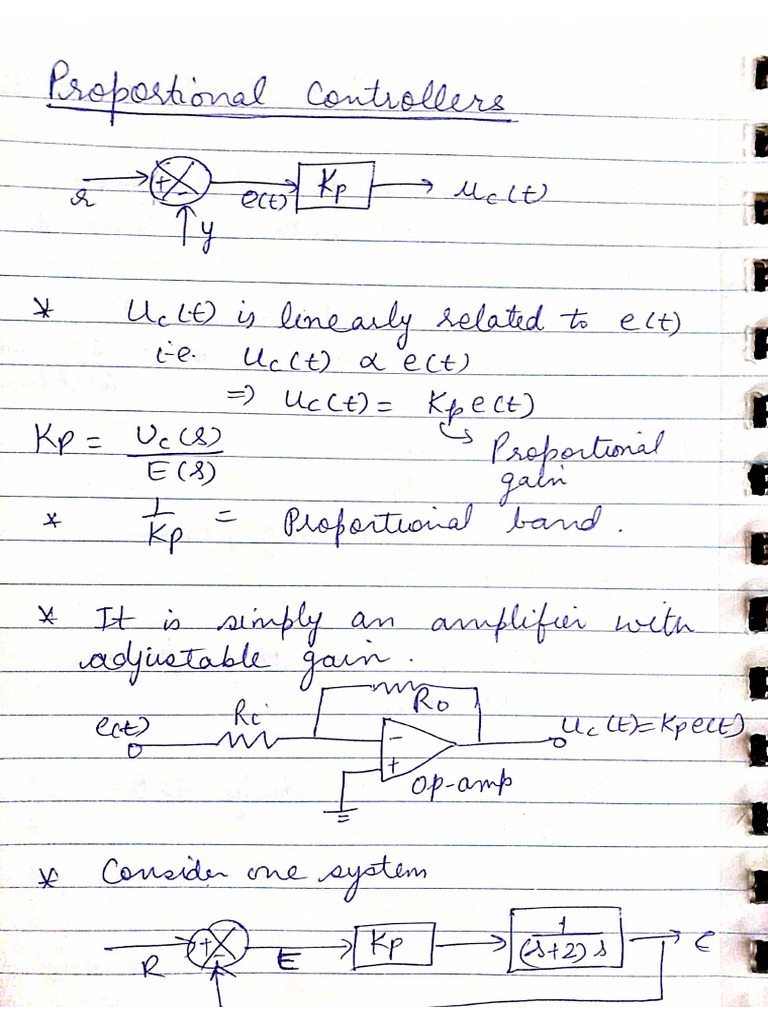 Proportional Controllers
r + - e(t) Kp uc(t)
y
* Uc(t) is linearly related to e(t)
i.e. uc(t) ∝ e(t)
=> uc(t) = Kp e(t)
Kp = Uc(s)/E(s) Proportional
gain
* 1/Kp = Proportional band.
* It is simply an amplifier with
adjustable gain.
Ro
e(t) Ri - uc(t)=Kpe(t)
+ Op-amp
* Consider one system
R + - E Kp 1/(s+2)s C